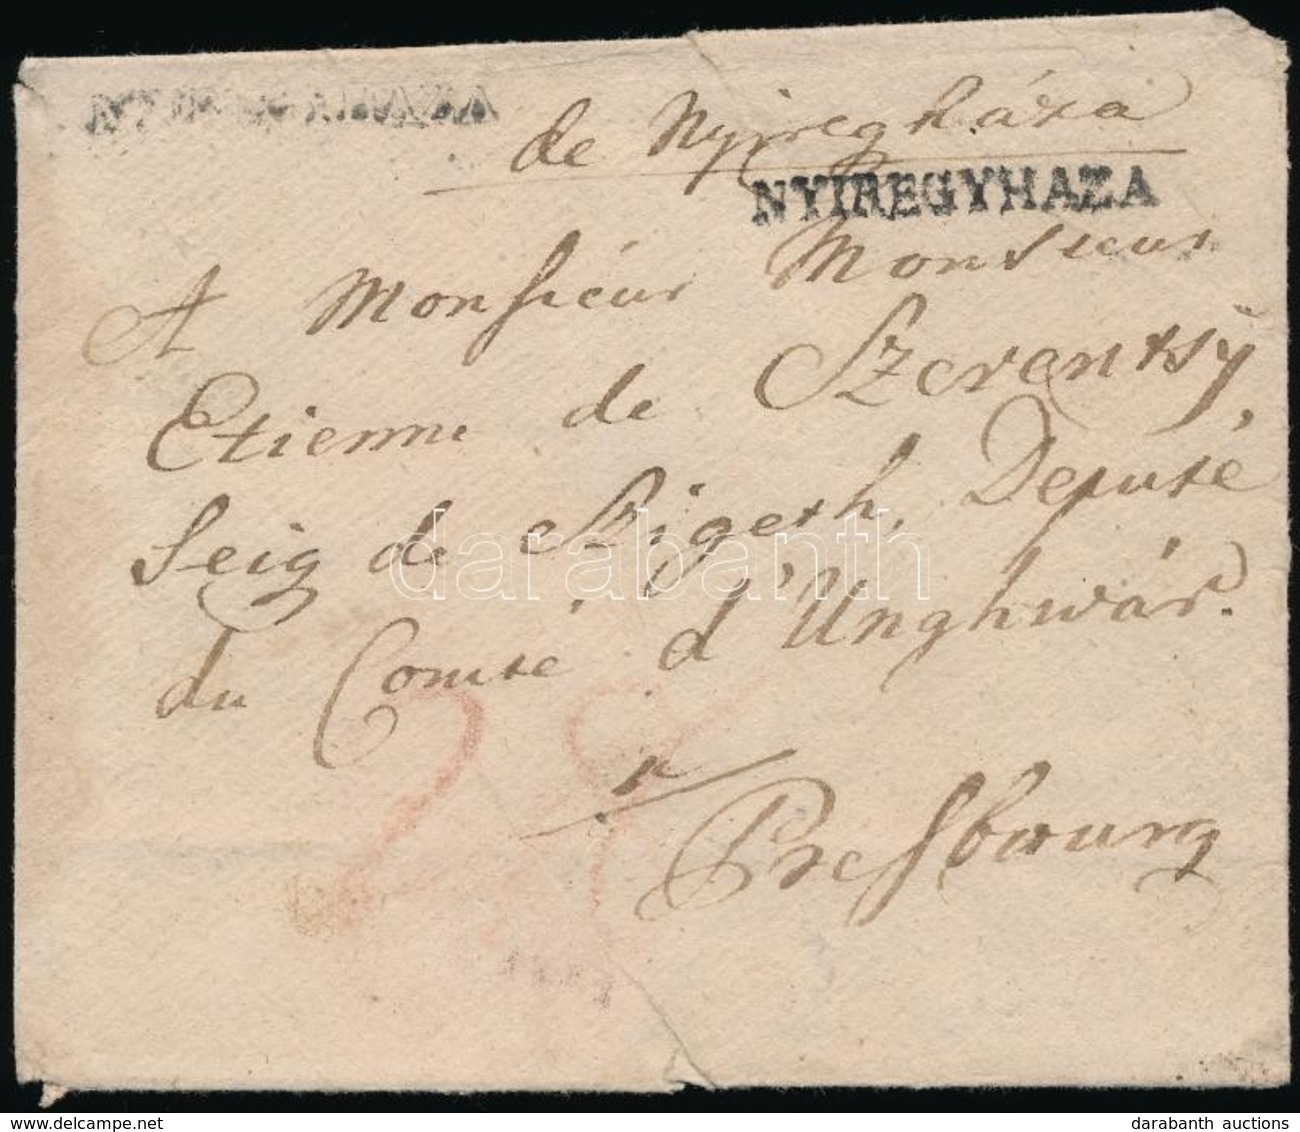 de Nyiregháza
NYIREGYHAZA
A Monsieur Monsieur
Etienne de Szerentsÿ,
Seig de Szigeth, Deputé
du Comté d'Unghwár.
28
Presbourg
darabanth
www.delcampe.net
darabanth auctions